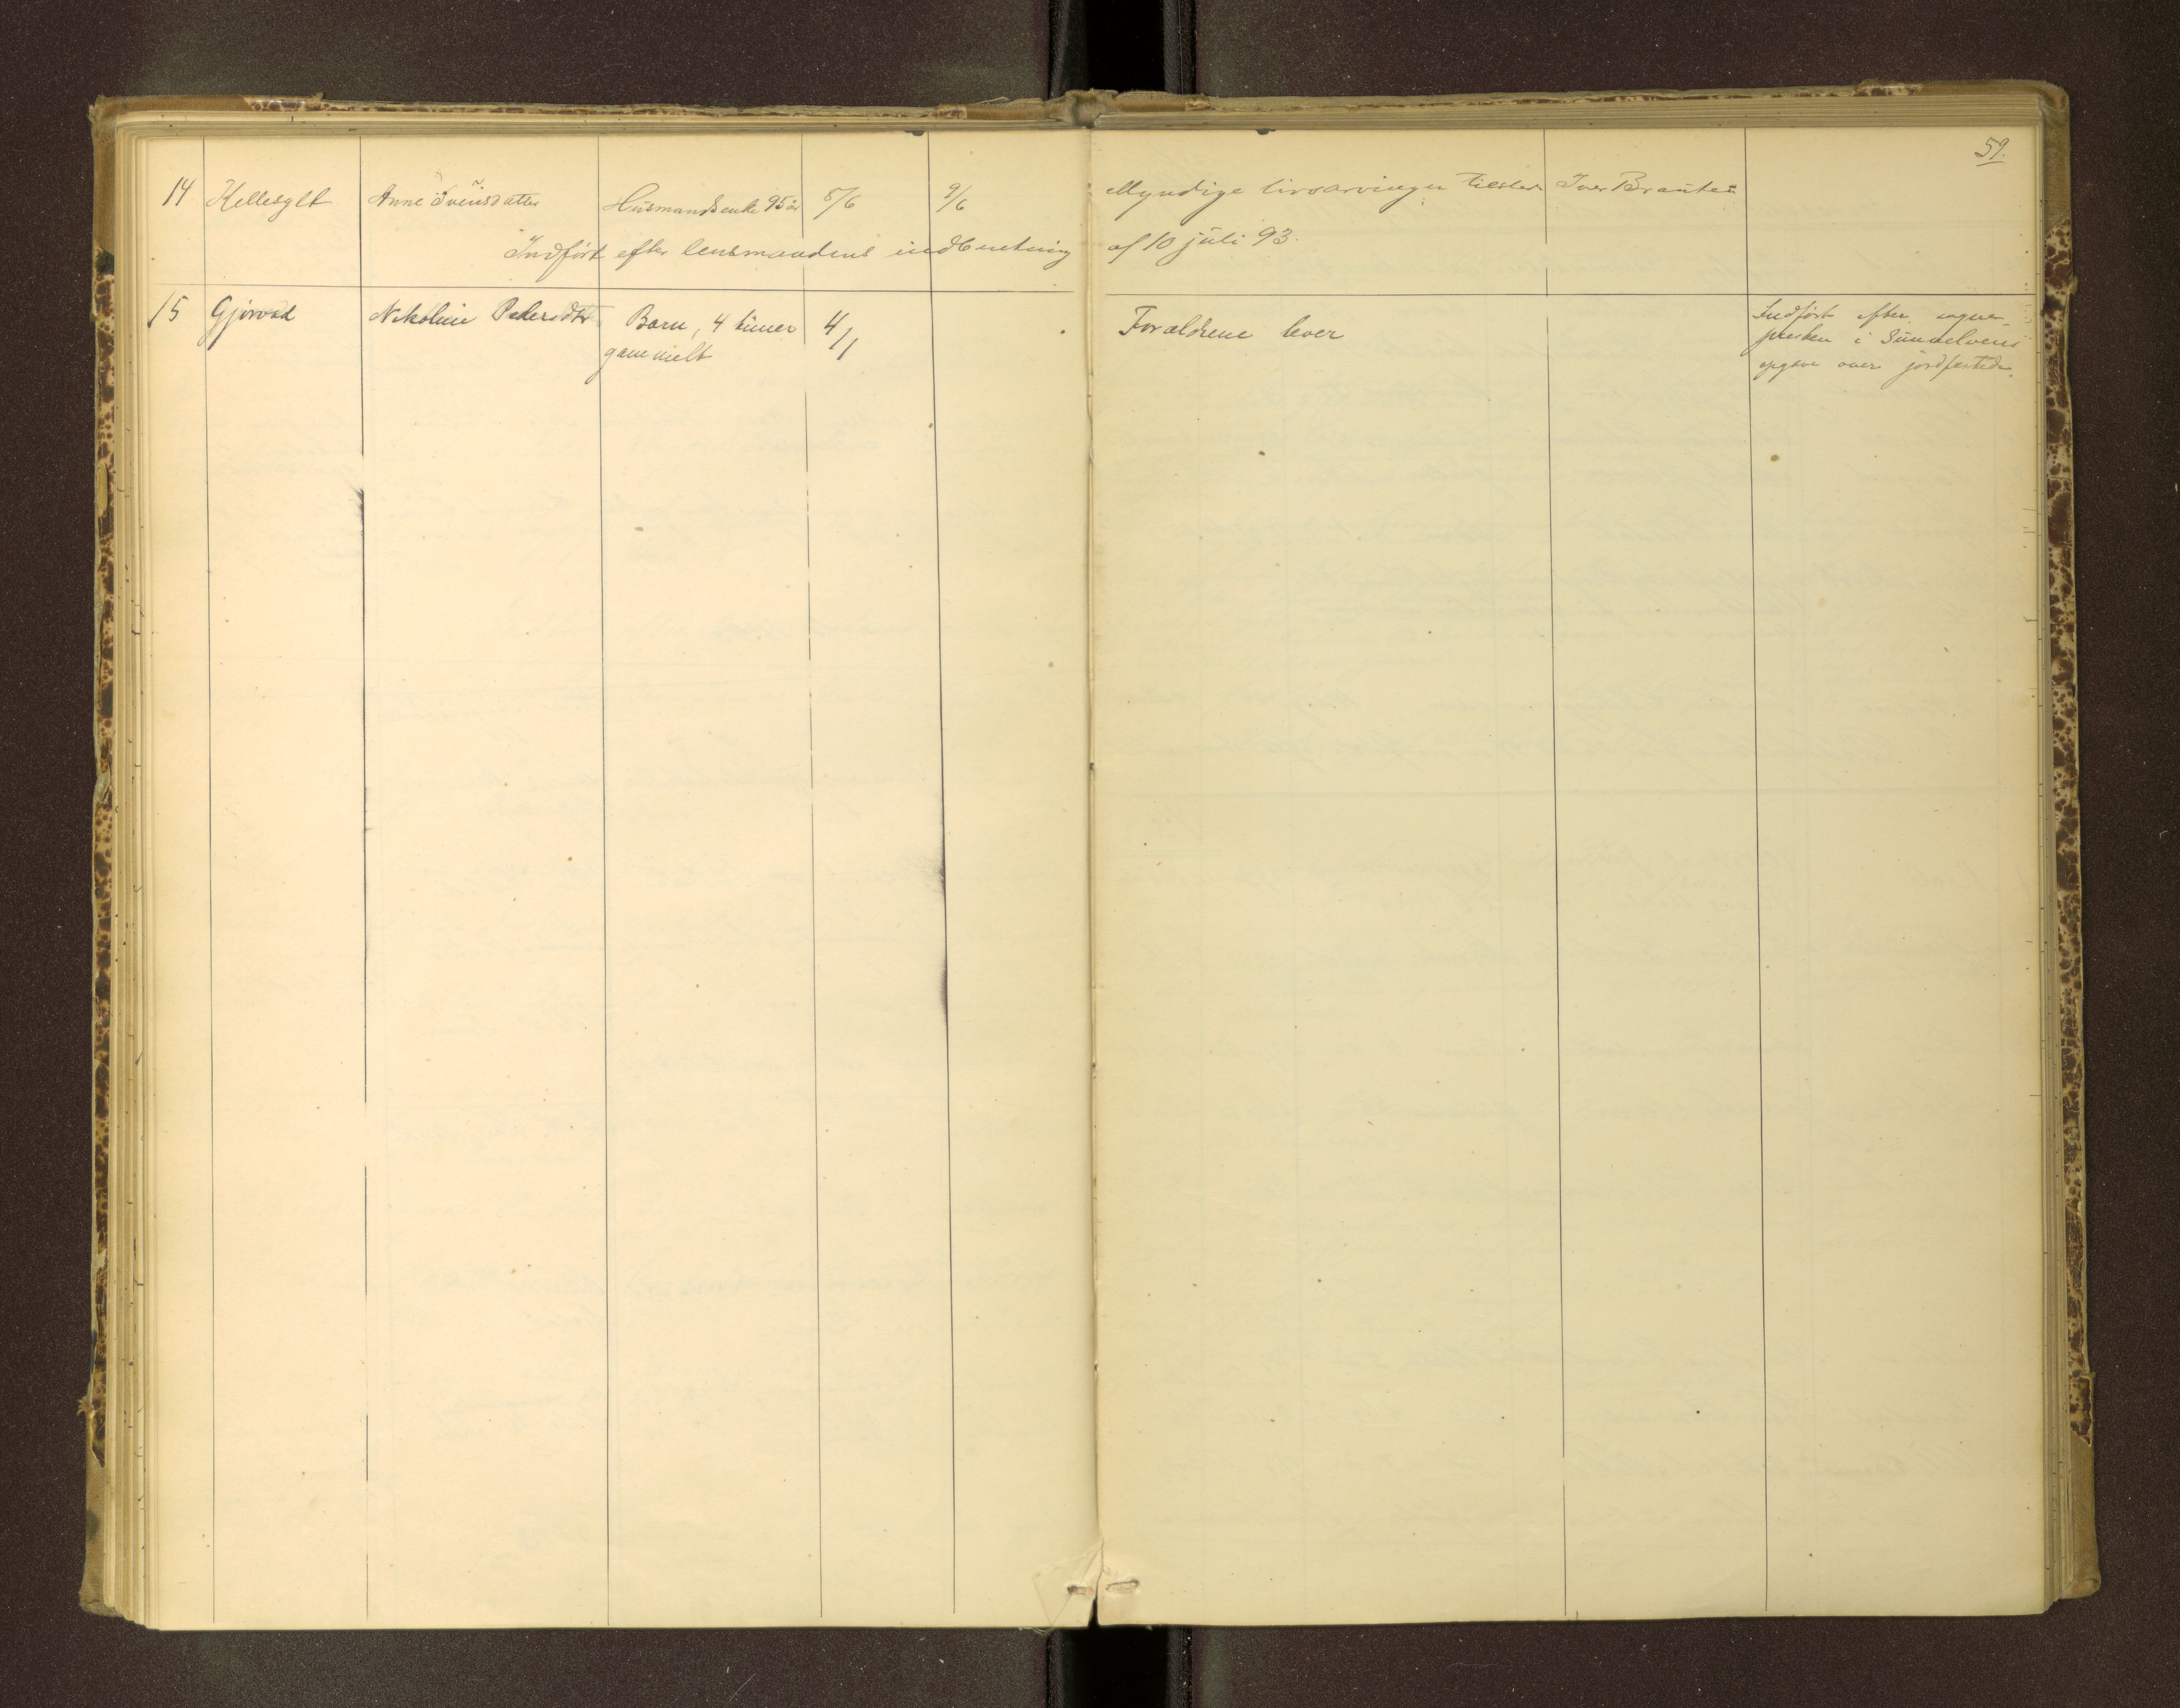 59.
14 Hellesylt Anne Sveinsdatter Husmandsenke 95 år 5/6 9/6 Myndige livsarvinger tilstede Iver Brauten
Indført efter lensmandens indberetning af 10 juli 93.
15 Gjørvad Nikoline Pedersdtr Barn, 4 timer 4/1 Forældrene lever Indført efter sogne-
gammelt presten i Sunnelvens
opgave over jordfæstede.